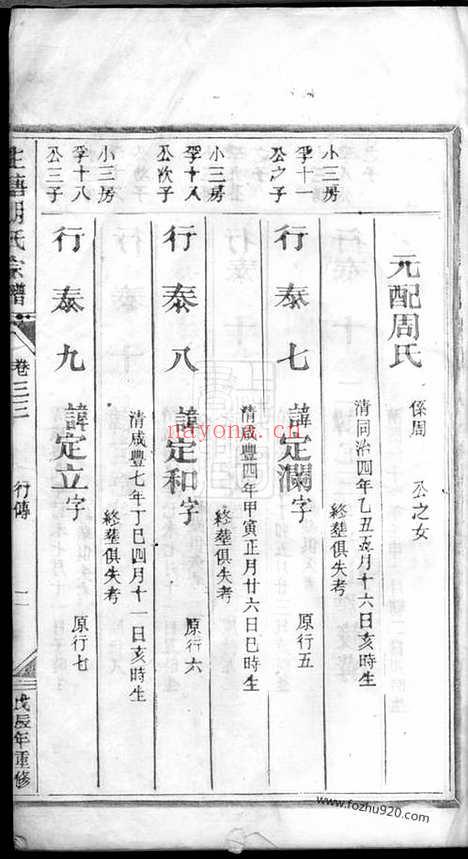 元配周氏
係周　公之女
清同治四年乙丑五月十六日亥時生
終塟俱失考
小三房
孚十一
公之子
行泰七
諱定瀾字
原行五
清咸豐四年甲寅正月廿六日巳時生
終塟俱失考
小三房
孚十八
公次子
行泰八
諱定和字
原行六
清咸豐七年丁巳四月十一日亥時生
終塟俱失考
小三房
孚十八
公三子
行泰九
諱定立字
原行七
胡氏宗譜
卷三三
行傳
二
戊辰年重修
nayona.cn
www.fozhu920.com